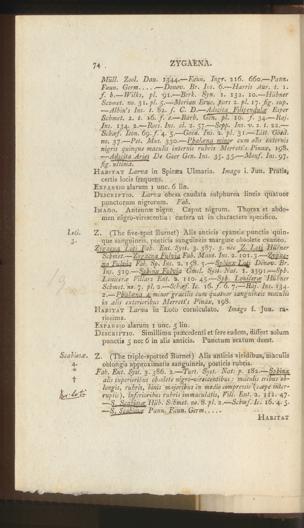 74 ZYGAENA.
Müll. Zool. Dan. 1344.—Faun. Ingr. 216. 660.—Panz.
Faun. Germ.....—Donov. Br. Ins. 6.—Harris Aur. t. 1.
f. b.—Wilks, pl. 91.—Berk. Syn. 1. 132. 10.—Hübner
Schmet. no. 31. pl. 5.—Merian Erus. pars 2. pl. 17. fig. sup.
—Albin's Ins. t. 82. f. C. D.—Adscita Filipendulæ Esper
Schmet. 2. t. 16. f.
Ins. 134. 2.—Roes. Ins. ii. 2. 57.—Sepp. Ins. n. 1. 22.—
Schæf. Icon. 69. f. 4. 5.—Goed. Ins. 2. pl. 31.—List. Goed.
no. 37.—Pet. Mus. 330.—Phalæna minor cum alis interius
nigris quinque maculis interius rubris Merrett's Pinax, 198.
—Adscita Aries De Geer Gen. Ins. 35. 35.—Mouf. Ins. 97.
fig. ultima.
HABITAT Larva in Spiræa Ulmaria. Imago i. Jun. Pratis,
certis locis frequens.
EXPANSIO alarum 1 unc. 6 lin.
DESCRIPTIO. Larva obesa caudata sulphurea lineis quatuor
punctorum nigrorum. Fab.
IMAGO. Antennæ nigræ. Caput nigrum. Thorax et abdo-
men nigro-virescentia: cætera ut in charactere specifico.
Loti. Z. (The five-spot Burnet) Alis anticis cyaneis punctis quin-
3. que sanguineis, posticis sanguineis margine obsoleto cyaneo.
Zygæna Loti Fab. Ent. Syst. 3. 387. 5. nec Z. Loti Hübner
Schmet.—Zygæna Fulvia Fab. Mant. Ins. 2. 101. 3.—Zygæ-
na Fulvia Fab. Sp. Ins. 2. 158. 3.—Sphinx Loti Donov. Br.
Ins. 319.—Sphinx Fulvia Gmel. Syst. Nat. 1. 2391.—Sph.
Loniceræ Villars Ent. 2. 110. 45.—Sph. Loniceræ Hübner
Schmet. no. 7. pl. 2.—Schæf. Ic. 16. f. 6. 7.—Raj. Ins. 134.
2.—Phalæna 4 minor gracilis cum quatuor sanguineis maculis
in alis exterioribus Merrett's Pinax, 198.
HABITAT Larva in Loto corniculato. Imago f. Jun. ra-
rissima.
EXPANSIO alarum 1 unc. 3 lin.
DESCRIPTIO. Simillima præcedenti et fere eadem, differt solum
punctis 5 nec 6 in alis anticis. Punctum sextum deest.
Scabiosæ. Z. (The triple-spotted Burnet) Alis anticis viridibus, maculis
4. oblonga approximatis sanguineis rubris, posticis rubris.
* Fab. Ent. Syst. 3. 386. 2.—Turt. Syst. Nat. p. 182.—Sphinx
† alis superioribus obsolete nigro-virescentibus: maculis tribus ob-
longis, rubris, binis majoribus in medio compressis (sæpe inter-
ruptis). Inferioribus rubris immaculatis, Vill. Ent. 2. 112. 47.
—S. Scabiosæ Hüb. Schmet. no. 8. pl. 2.—Schæf. Ic. 16. 4. 5.
—S. Scabiosæ Panz. Faun. Germ.....
HABITAT